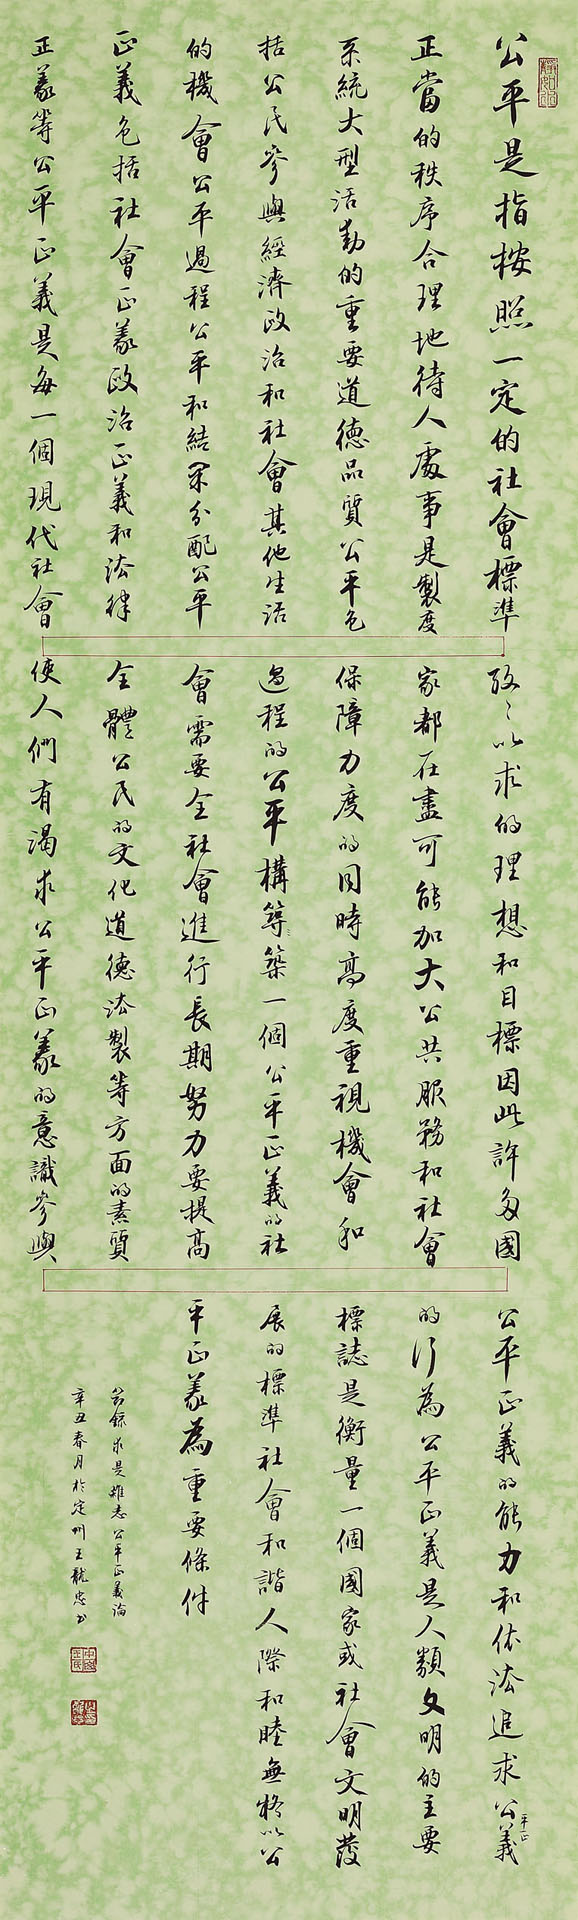 公平是指按照一定的社會標準
正當的秩序合理地待人處事是製度
系統大型活動的重要道德品質公平包
括公民參與經濟政治和社會其他生活
的機會公平過程公平和結果分配公平
正義包括社會正義政治正義和法律
正義等公平正義是每一個現代社會
孜〻以求的理想和目標因此許多國
家都在盡可能加大公共服務和社會
保障力度的同時高度重視機會和
過程的公平構等築一個公平正義的社
會需要全社會進行長期努力要提高
全體公民的文化道德法製等方面的素質
使人們有渴求公平正義的意識參與
公平正義的能力和依法追求公義
平正
的行為公平正義是人類文明的主要
標誌是衡量一個國家或社會文明發
展的標準社會和諧人際和睦無終以公
平正義為重要條件
節錄求是雜志公平正義論
辛丑春月於定州王龍忠书